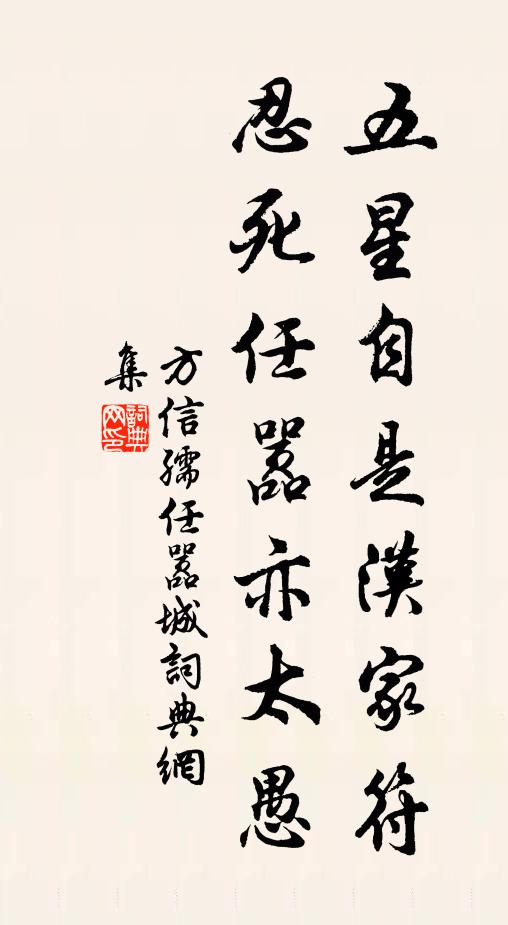 五星自是漢家符
忍死任囂亦太愚
方信孺任囂城詞典網
集
詞典網印